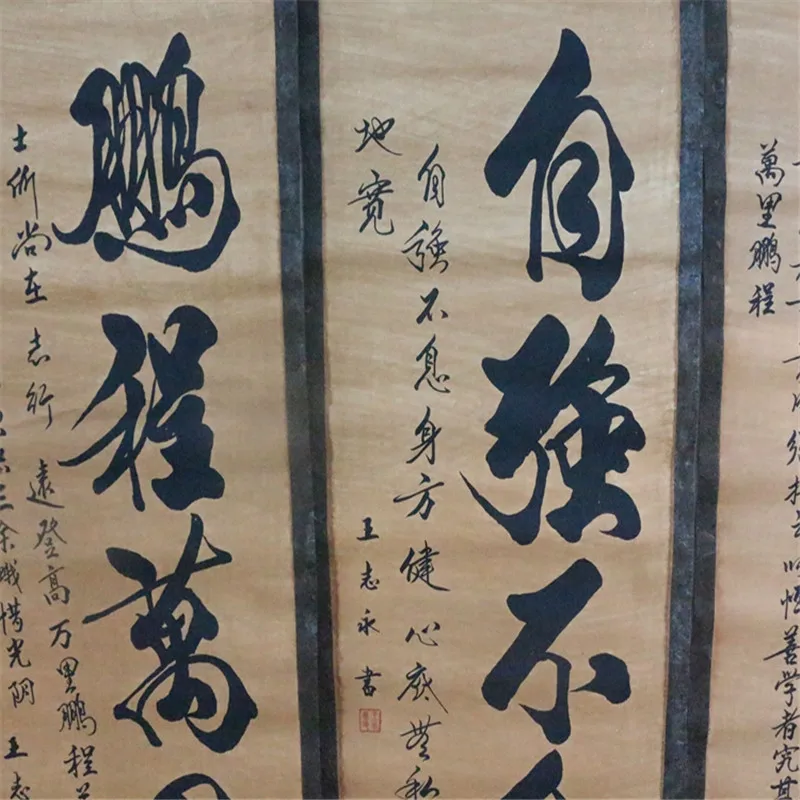 善学者究其
萬里鵬程
自強不
自強不息身方健心底無私
地寬
王志永書
鵬程萬
士所尚在志行遠登高万里鵬程
三余惜光阴王志